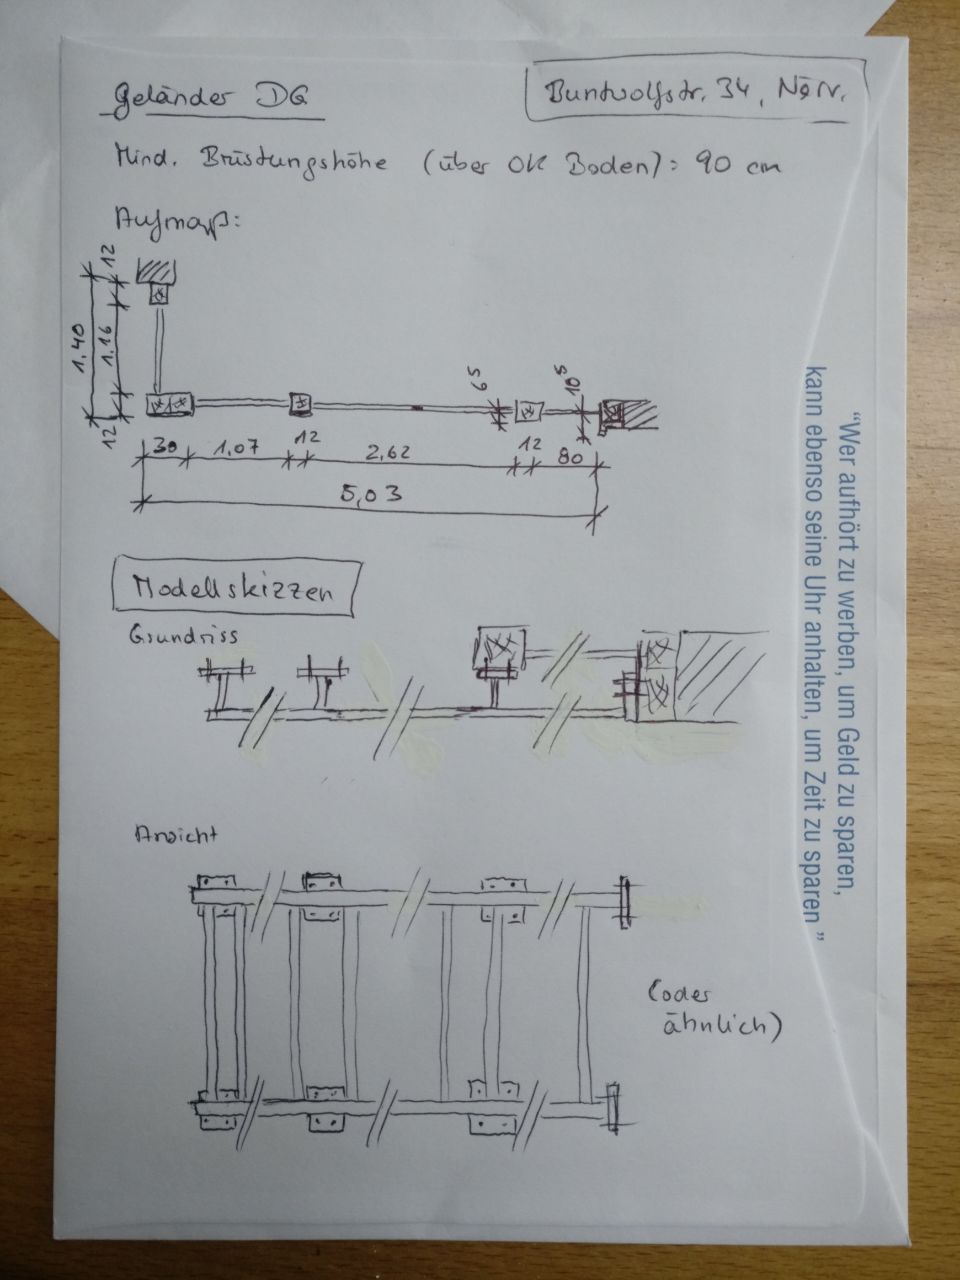 Geländer DG
Mind. Brüstungshöhe (über OK Boden): 90 cm
Aufmaß:
12
1,40
1,16
12
6⁵
10⁵
30
1,07
12
2,62
12
80
5,03
Modellskizzen
Grundriss
Ansicht
(oder
ähnlich)
"Wer aufhört zu werben, um Geld zu sparen,
kann ebenso seine Uhr anhalten, um Zeit zu sparen"